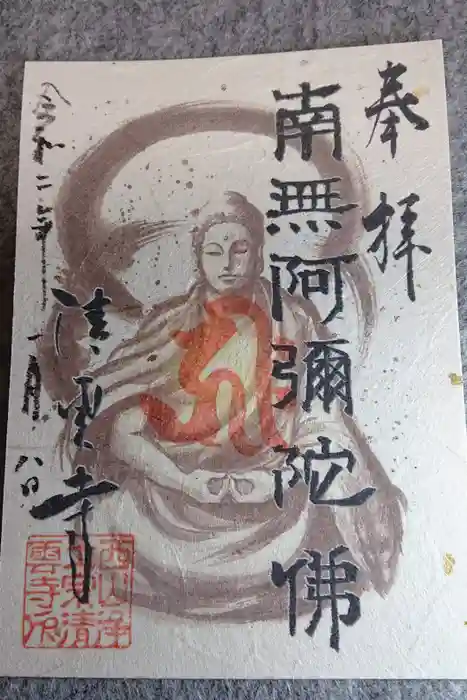 奉拝
南無阿彌陀佛
清雲寺
令和二年一月八日
西山浄
土宗清
雲寺印